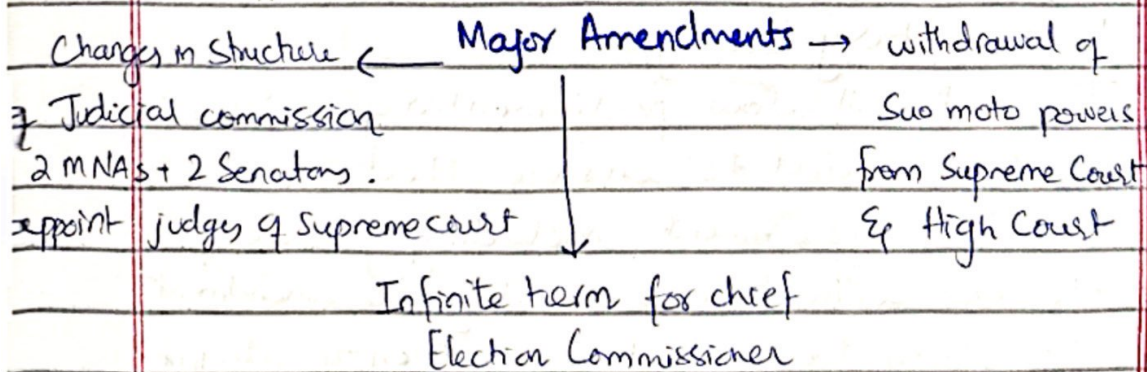 Major Amendments
Changes in Structure
of Judicial commission
2 MNAs + 2 Senators.
appoint judges of Supreme court
withdrawal of
Suo moto powers
from Supreme Court
& High Court
Infinite term for chief
Election Commissioner